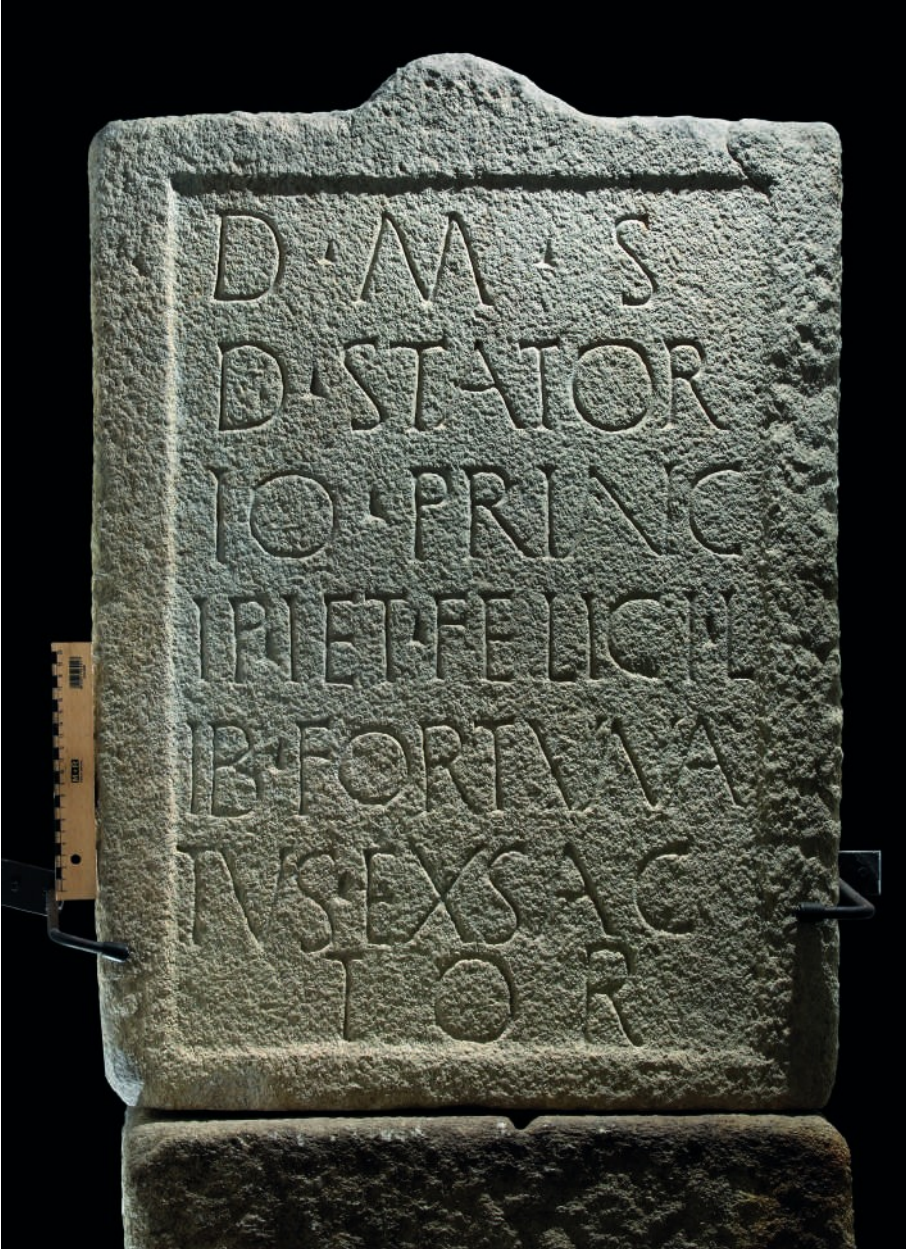 D · M · S
D · STATOR
IO · PRINC
IPI ET · FELICI L
IB · FORTVNA
TVS · EXSAC
TOR